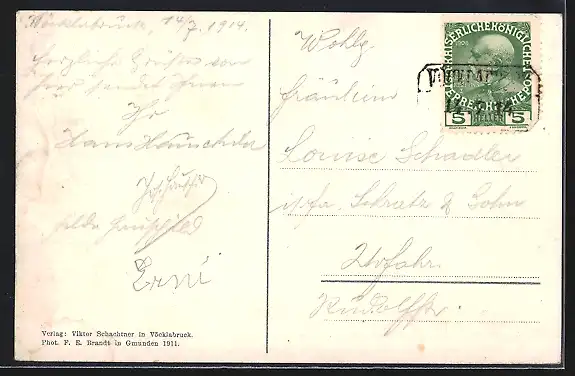 Vöcklabruck, 14/7. 1914.
Herzliche Grüße von
hier sendet Ihnen
Ihr
Hans
Hilde
Erni
Verlag: Viktor Schachtner in Vöcklabruck.
Phot. F. E. Brandt in Gmunden 1911.
Wohlg.
Fräulein
Louise Schadler
Schatz & Sohn
Urfahr
Rudolfstr.
KAISERLICHE KÖNIGLICHE
ÖSTERREICHISCHE POST
1908
5 HELLER 5